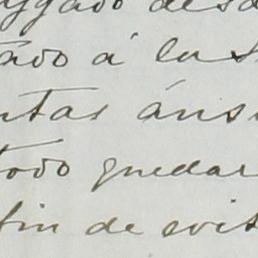 uzgado desd
ado á las
ntas áns
todo quedar
fin de evit